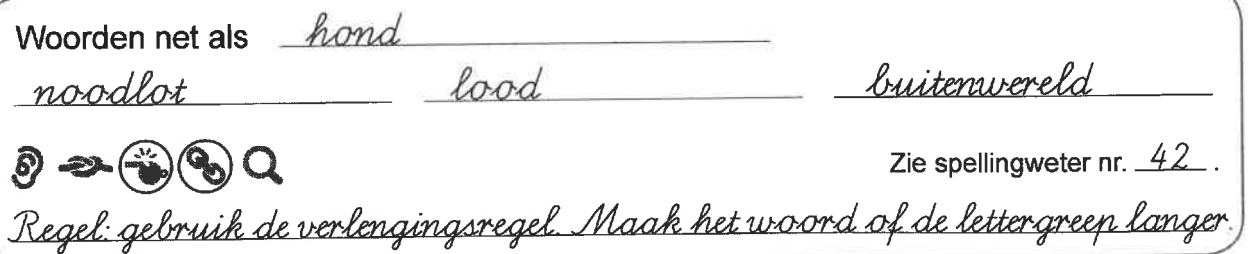 Woorden net als hond
noodlot lood buitenwereld
Zie spellingweter nr. 42.
Regel: gebruik de verlengingsregel. Maak het woord of de lettergreep langer.